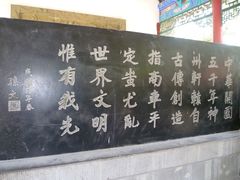 中華開國
五千年神
州軒轅自
古傳創造
指南車平
定蚩尤亂
世界文明
惟有我先
孫文